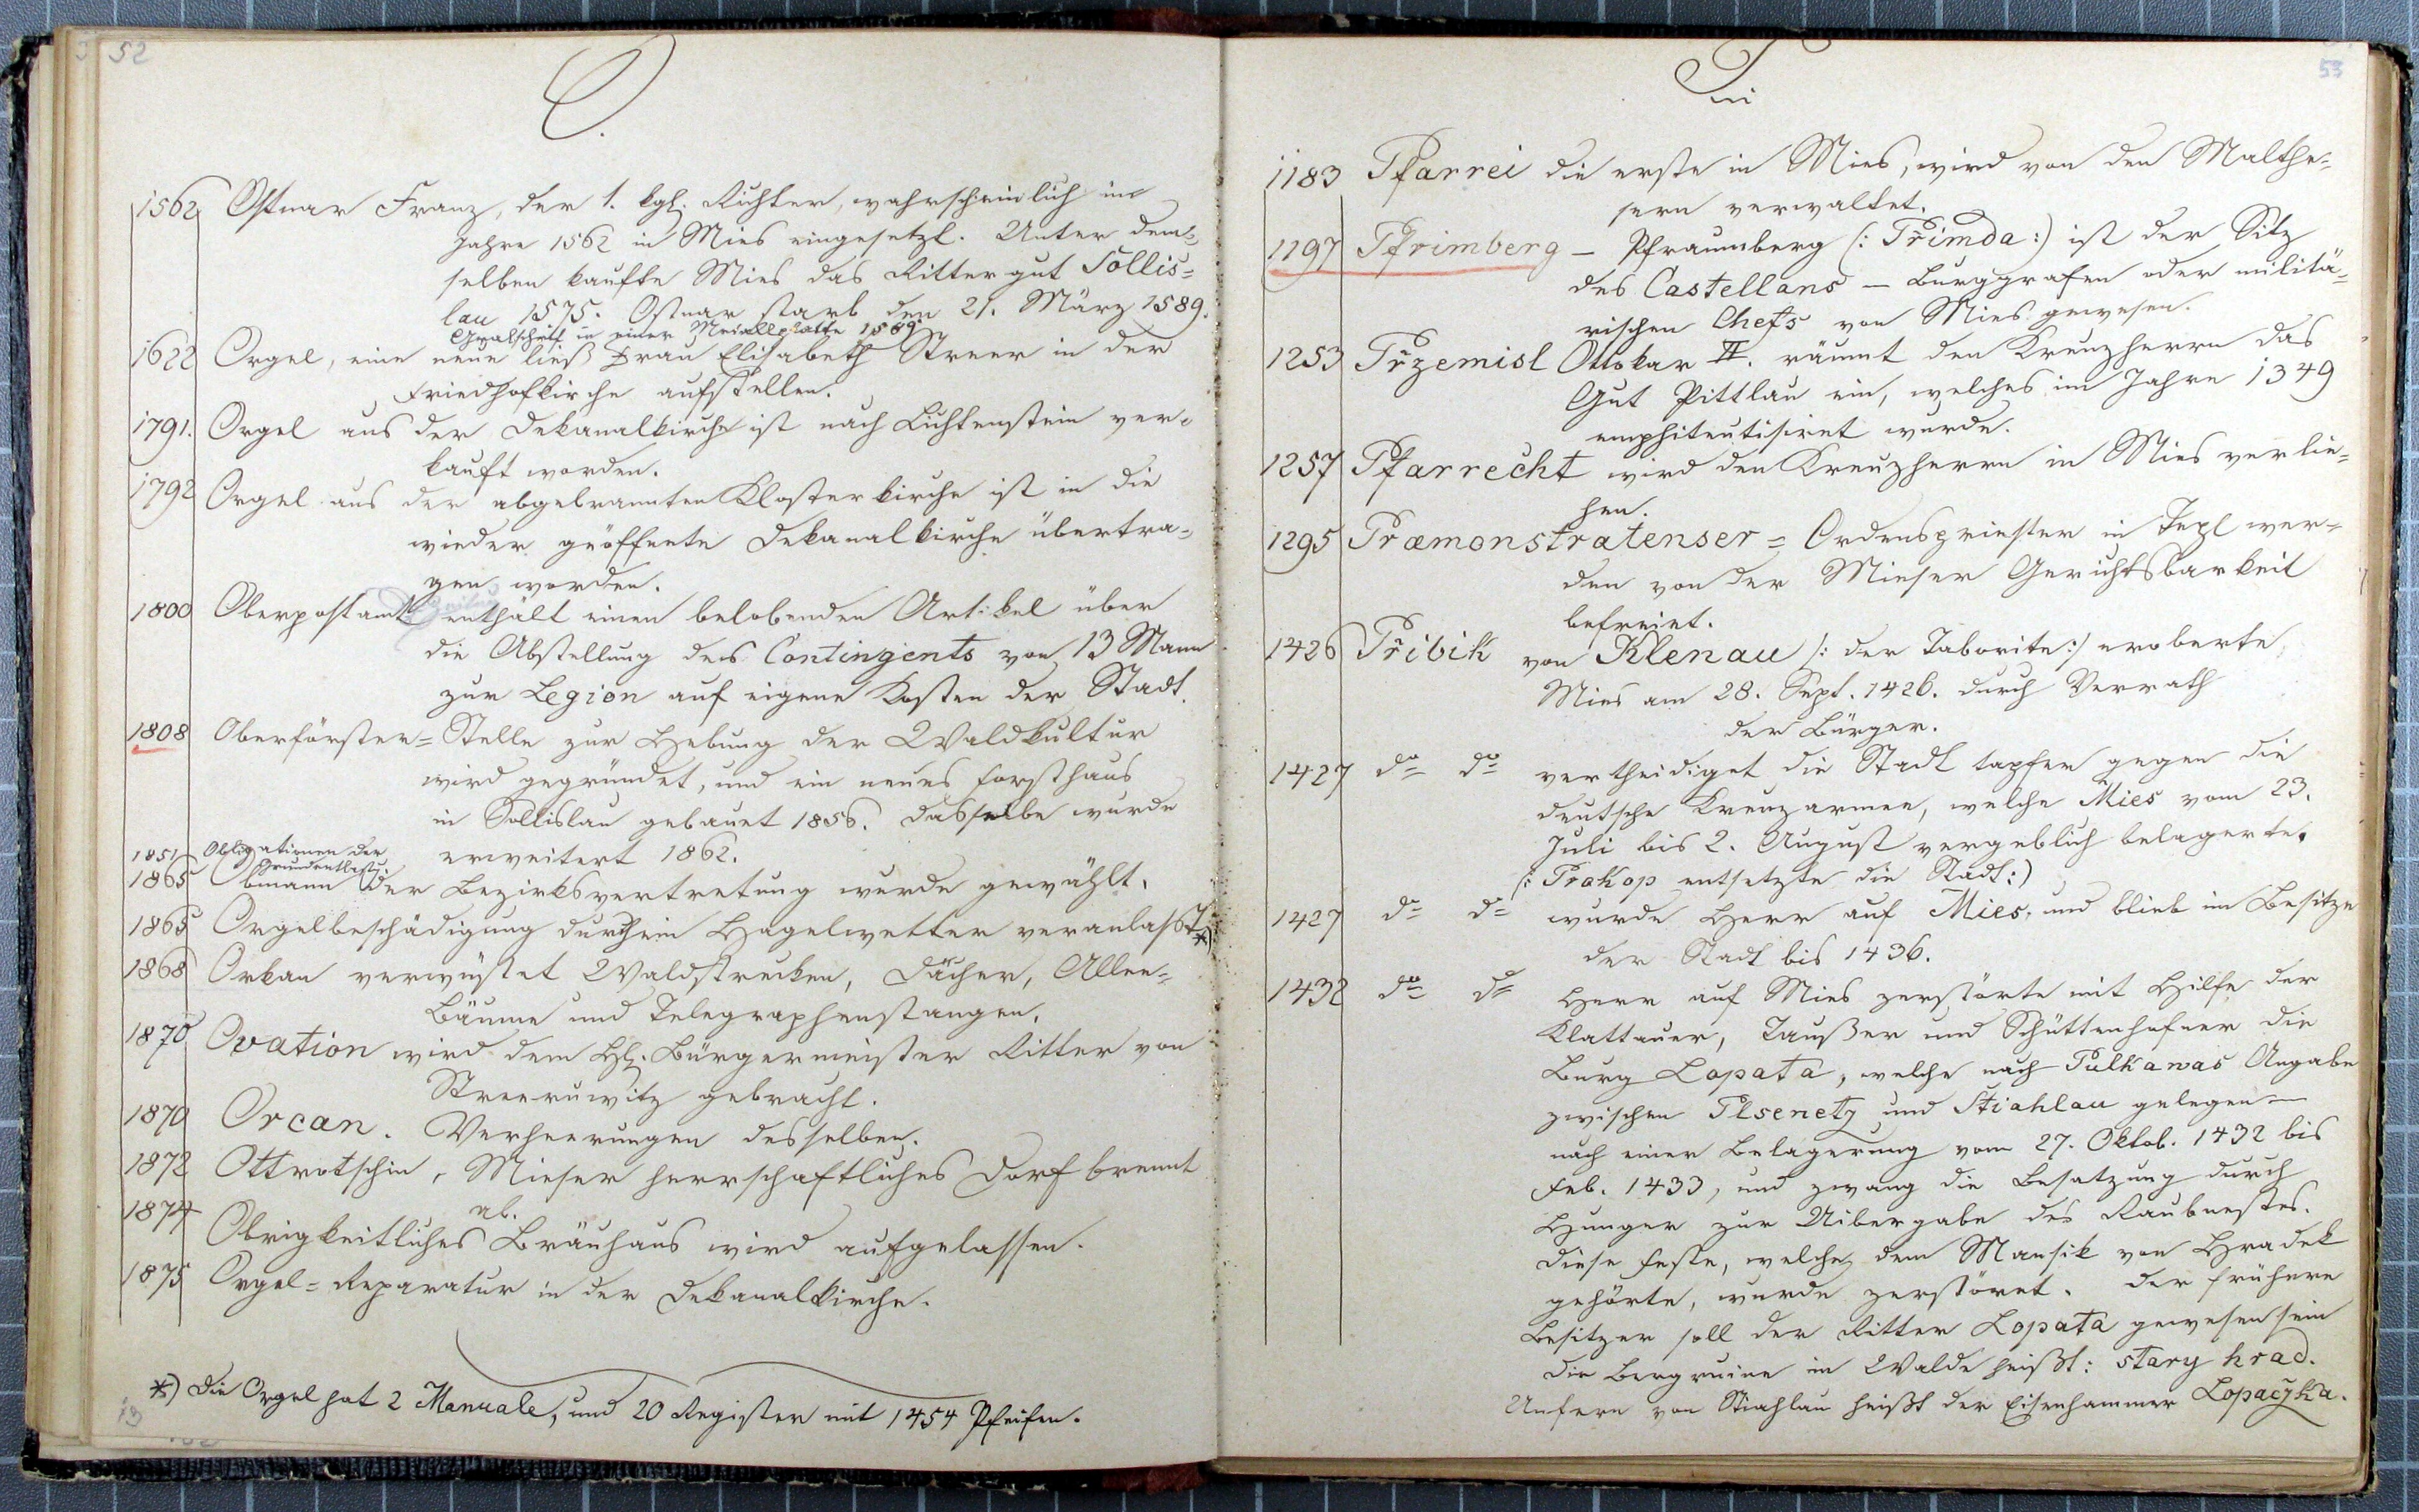 52
O.
1562 Ostnar Franz, der 1. kgl. Richter, wahrscheinlich im
Jahre 1562 in Mies eingesetzt. Unter dem-
selben kaufte Mies das Rittergut Sollis-
lau 1575. Ostnar starb den 21. März 1589.
Grabschrift in einer Metallplatte 1589.
1622 Orgel, eine neue ließ Frau Elisabeth Streer in der
Friedhofkirche aufstellen.
1791. Orgel aus der Dekanalkirche ist nach Lichtenstein ver-
kauft worden.
1792 Orgel aus der abgebrannten Klosterkirche ist in die
wieder geöffnete Dekanalkirche übertra-
gen worden.
1800 Oberpostamts Zeitung enthält einen belobenden Artikel über
die Abstellung des Contingents von 13 Mann
zur Legion auf eigene Kosten der Stadt.
1808 Oberförster-Stelle zur Hebung der Waldkultur
wird gegründet, und ein neues Forsthaus
in Sollislau gebauet 1856. Dasselbe wurde
erweitert 1862.
1851 Obligationen der
Grundentlastu.
1865 Obmann der Bezirksvertretung wurde gewählt.
1865 Orgelbeschädigung durch ein Hagelwetter veranlasst *)
1868 Orkan verwüstet Waldstrecken, Dächer, Allee-
Bäume und Telegraphenstangen.
1870 Ovation wird dem H. Bürgermeister Ritter von
Streeruwitz gebracht.
1870 Orcan. Verheerungen desselben.
1872 Ottrotschin, Mieser herrschaftliches Dorf brennt
ab.
1874 Obrigkeitliches Bräuhaus wird aufgelassen.
1875 Orgel-Reparatur in der Dekanalkirche.
*) Die Orgel hat 2 Manuale, und 20 Register mit 1454 Pfeifen.
53
P
1183 Pfarrei die erste in Mies, wird von den Malthe-
sern verwaltet.
1197 Pfrimberg – Pfraumberg (: Přimda :) ist der Sitz
des Castellans – Burggrafen oder militä-
rischen Chefs von Mies gewesen.
1253 Przemisl Ottokar II. räumt den Kreuzherrn das
Gut Pittlau ein, welches im Jahre 1349
emphiteutisiret wurde.
1257 Pfarrecht wird den Kreuzherrn in Mies verlie-
hen.
1295 Præmonstratenser-Ordenspriester in Tepl wer-
den von der Mieser Gerichtsbarkeit
befreiet.
1426 Přibik von Klenau /: der Taborite :/ eroberte
Mies am 28. Sept. 1426. durch Verrath
der Bürger.
1427 do do vertheidiget die Stadt tapfer gegen die
deutsche Kreuzarmee, welche Mies vom 23.
Juli bis 2. August vergeblich belagerte.
(: Prokop entsetzte die Stadt :)
1427 do do wurde Herr auf Mies, und blieb im Besitze
der Stadt bis 1436.
1432 do do Herr auf Mies zerstörte mit Hilfe der
Klattauer, Taußer und Schüttenhofner die
Burg Lopata, welche nach Pulkawas Angabe
zwischen Plsenetz und Štiahlau gelegen –
nach einer Belagerung vom 27. Oktob. 1432 bis
Feb. 1433, und zwang die Besatzung durch
Hunger zur Uibergabe des Raubnestes.
Diese Feste, welche dem Mansik von Hradek
gehörte, wurde zerstöret. Der frühere
Besitzer soll der Ritter Lopata gewesen sein
Die Bergruine im Walde heißt: stary hrad.
Unfern von Stiahlau heißt der Eisenhammer Lopačzka.